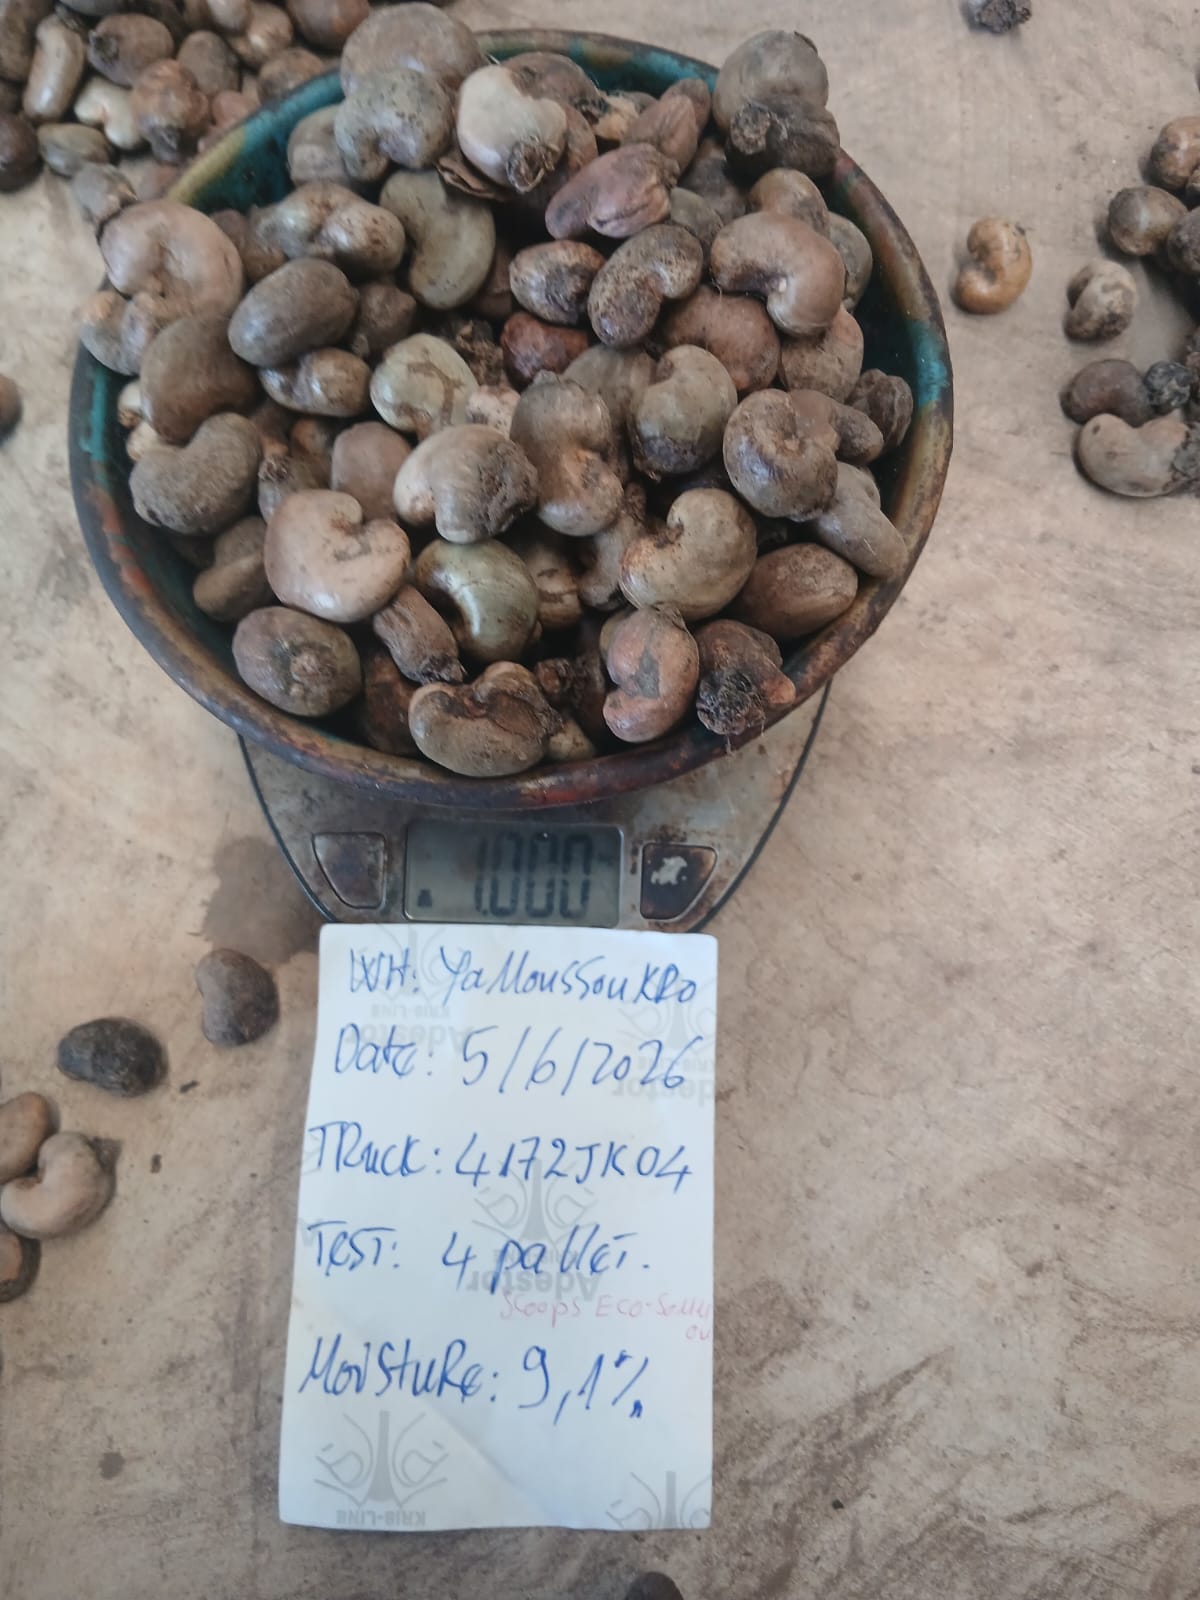 1.000
WH: YaMoussouKRo
Date: 5/6/2026
TRuck: 4172JK04
Test: 4 pallet.
Scoops Eco-
ou
MoiStuRe: 9,1%
Adestor
KRIB-LINE